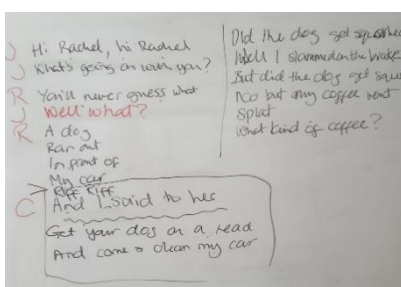 J Hi Rachel, hi Rachel
J What's going on with you?
R You'll never guess what
J Well what?
R A dog
Ran out
In front of
My car
RIFF RIFF
C And I said to her
Get your dog on a lead
And come & clean my car
Did the dog get
Well I slammed on the brake
But did the dog get
Noo but my coffee went
Splat
What kind of coffee?